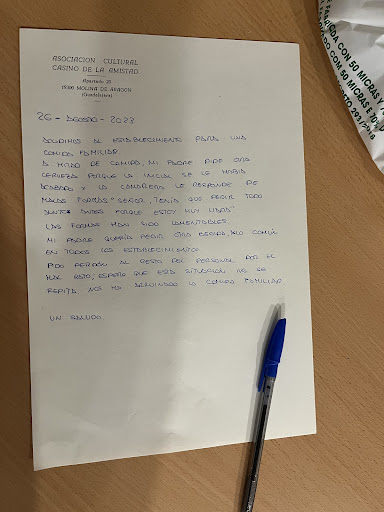 ASOCIACION CULTURAL
CASINO DE LA AMISTAD
Apartado 25
19300 MOLINA DE ARAGON
(Guadalajara)
26 - AGOSTO - 2023
ACUDIMOS AL ESTABLECIMIENTO PARA UNA
COMIDA FAMILIAR.
A MITAD DE COMIDA, MI PADRE PIDE OTRA
CERVEZA PORQUE LA INICIAL SE LE HABÍA
Y LA CAMARERA LE RESPONDE DE
MALAS FORMAS "SEÑOR, TENÍA QUE PEDIR TODO
ANTES PORQUE ESTOY MUY LIADA"
LAS FORMAS HAN SIDO LAMENTABLES.
MI PADRE QUERÍA PEDIR OTRA BEBIDA, ALGO COMÚN
EN TODOS LOS ESTABLECIMIENTOS.
PIDO PERDÓN AL RESTO DEL PERSONAL POR EL
MAL RATO, ESPERO QUE ESTA SITUACIÓN NO SE
REPITA. NOS HA ARRUINADO LA COMIDA FAMILIAR
UN SALUDO.
CON 50 MICRAS Y 70%
CON 50 MICRAS